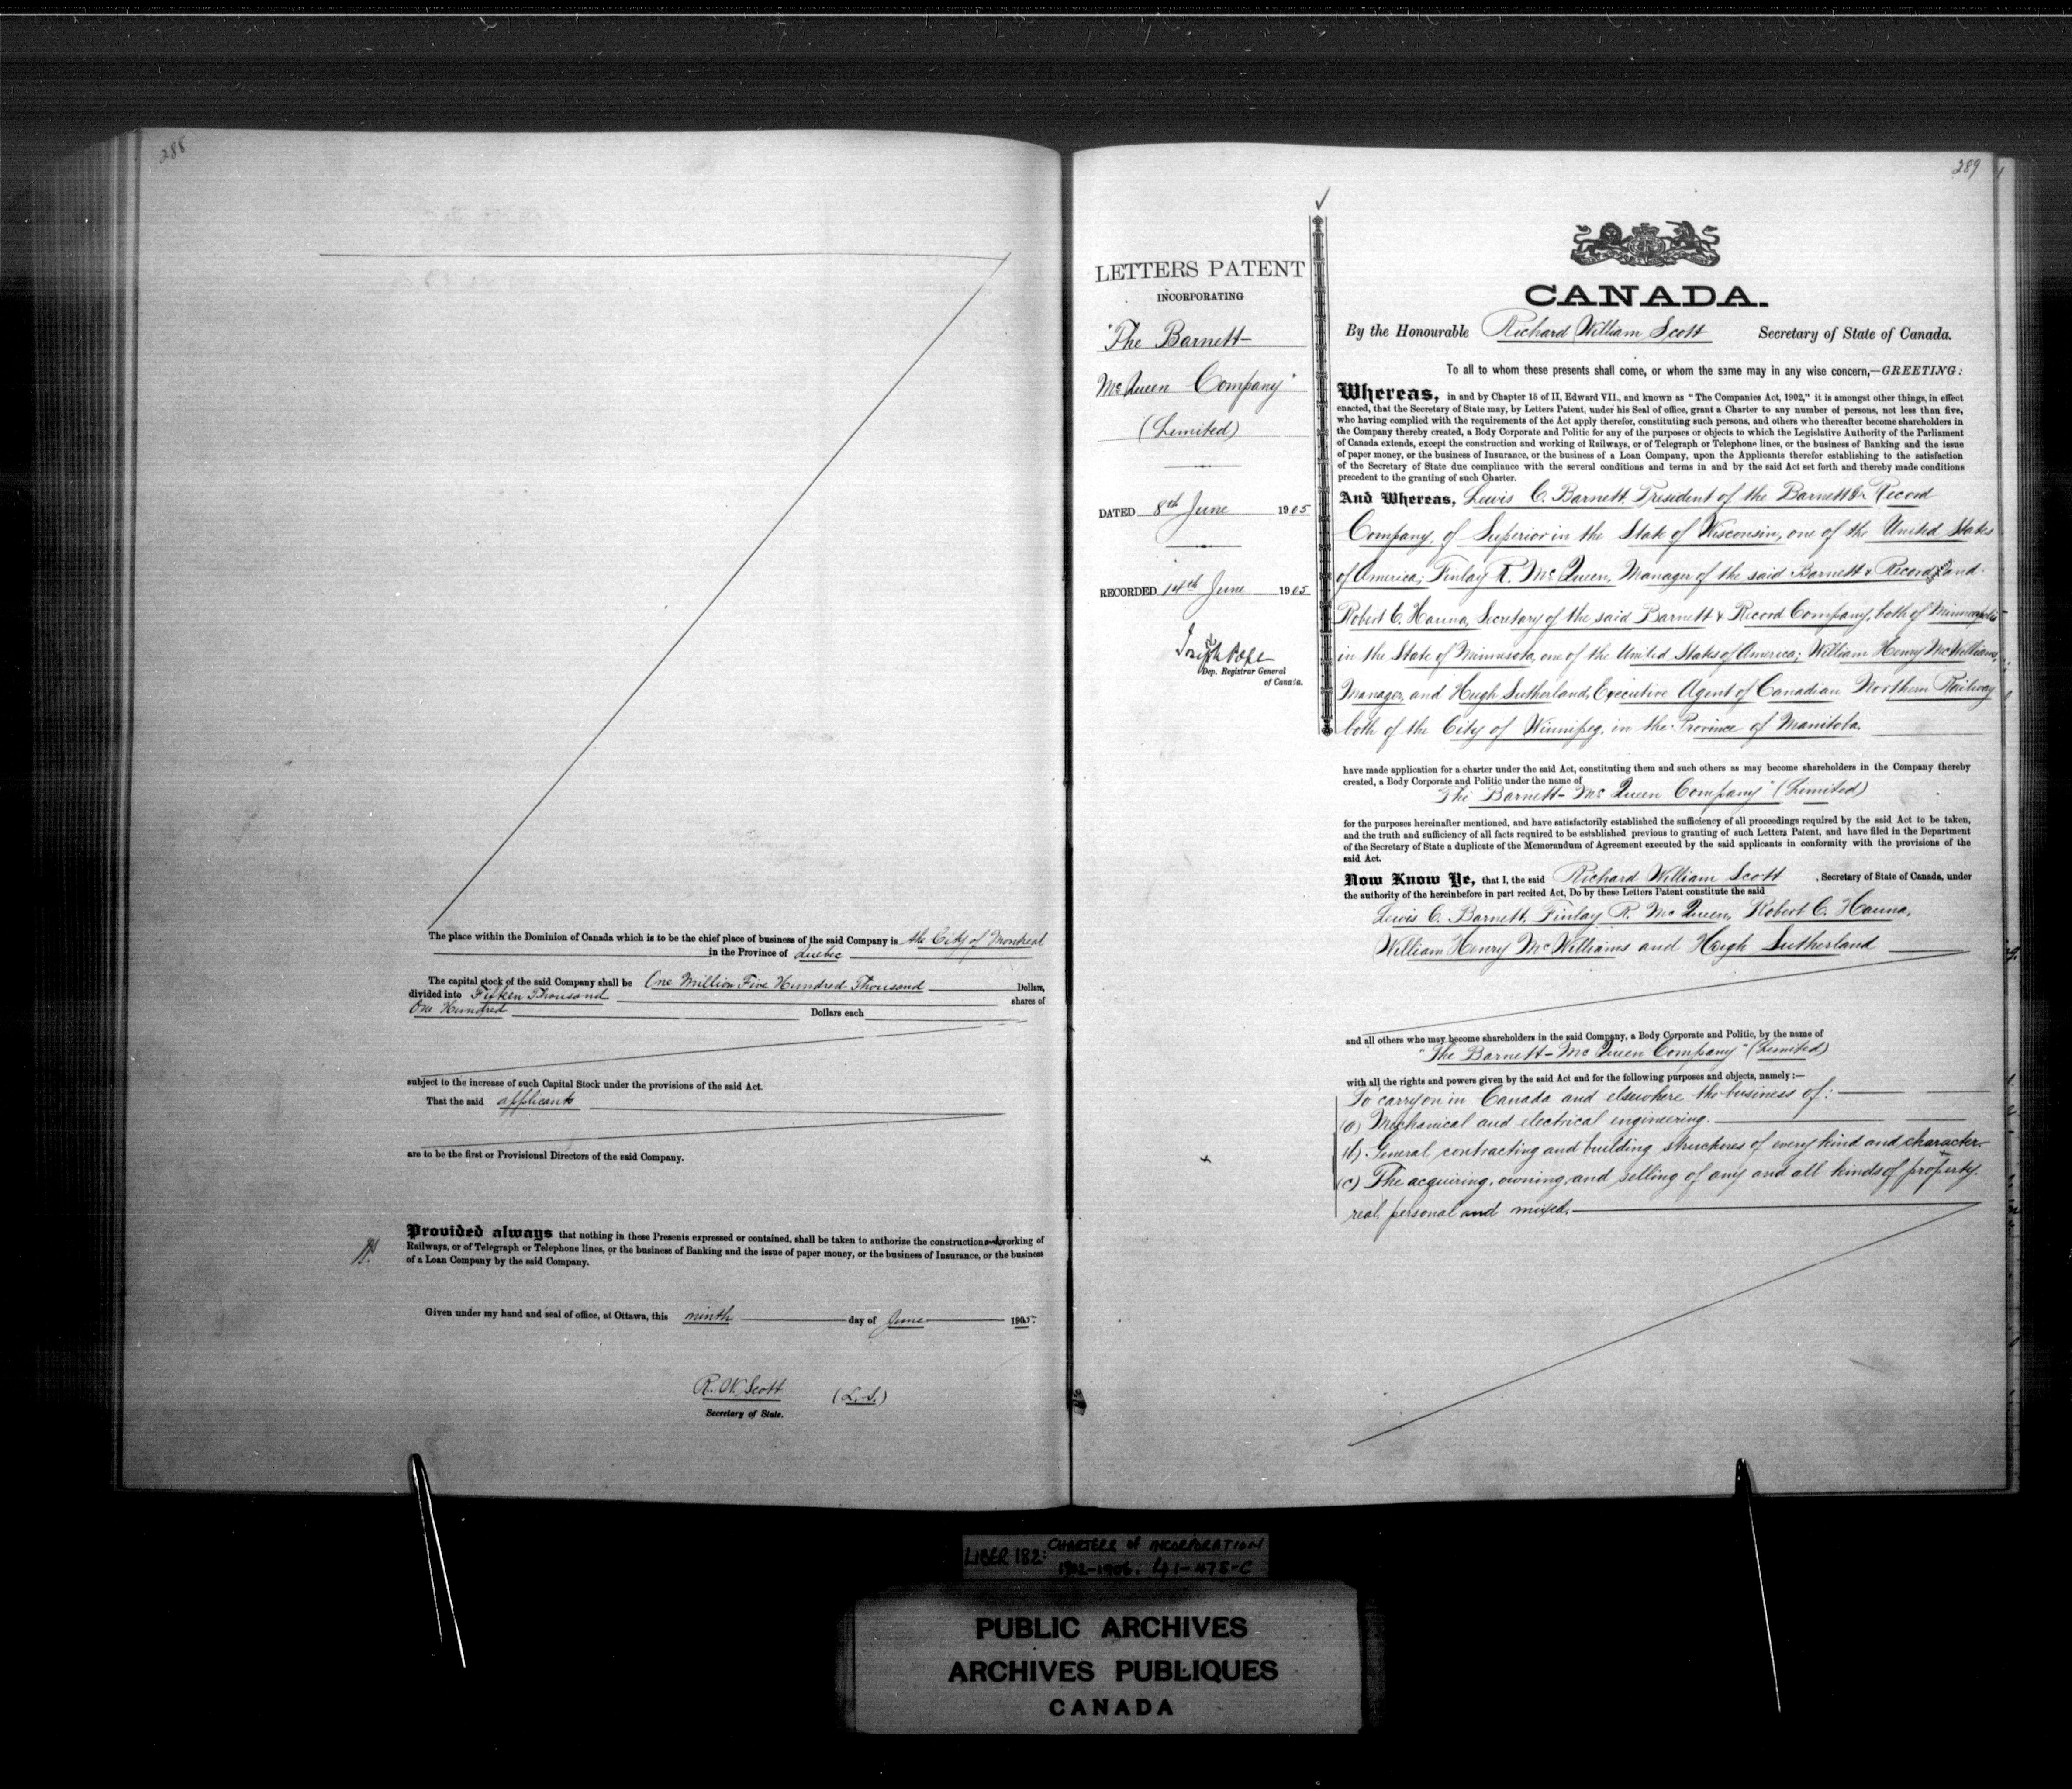 288
The place within the Dominion of Canada which is to be the chief place of business of the said Company is the City of Montreal
in the Province of Quebec
The capital stock of the said Company shall be One Million Five Hundred Thousand Dollars,
divided into Fifteen Thousand shares of
One Hundred Dollars each
subject to the increase of such Capital Stock under the provisions of the said Act.
That the said applicants
are to be the first or Provisional Directors of the said Company.
Provided always that nothing in these Presents expressed or contained, shall be taken to authorize the construction and working of
Railways, or of Telegraph or Telephone lines, or the business of Banking and the issue of paper money, or the business of Insurance, or the business
of a Loan Company by the said Company.
Given under my hand and seal of office, at Ottawa, this ninth day of June 1905.
R. W. Scott (L. S.)
Secretary of State.
289
LETTERS PATENT
INCORPORATING
"The Barnett-
McQueen Company"
(Limited)
DATED 8th June 1905
RECORDED 14th June 1905
Joseph Pope
Dep. Registrar General
of Canada.
CANADA.
By the Honourable Richard William Scott Secretary of State of Canada.
To all to whom these presents shall come, or whom the same may in any wise concern,—GREETING:
Whereas, in and by Chapter 15 of II, Edward VII., and known as "The Companies Act, 1902," it is amongst other things, in effect
enacted, that the Secretary of State may, by Letters Patent, under his Seal of office, grant a Charter to any number of persons, not less than five,
who having complied with the requirements of the Act apply therefor, constituting such persons, and others who thereafter become shareholders in
the Company thereby created, a Body Corporate and Politic for any of the purposes or objects to which the Legislative Authority of the Parliament
of Canada extends, except the construction and working of Railways, or of Telegraph or Telephone lines, or the business of Banking and the issue
of paper money, or the business of Insurance, or the business of a Loan Company, upon the Applicants therefor establishing to the satisfaction
of the Secretary of State due compliance with the several conditions and terms in and by the said Act set forth and thereby made conditions
precedent to the granting of such Charter.
And Whereas, Lewis C. Barnett, President of the Barnett & Record
Company, of Superior in the State of Wisconsin, one of the United States
of America; Finlay R. McQueen, Manager of the said Barnett & Record Co and
Robert C. Hanna, Secretary of the said Barnett & Record Company, both of Minneapolis
in the State of Minnesota, one of the United States of America; William Henry McWilliams,
Manager, and Hugh Sutherland, Executive Agent of Canadian Northern Railway
both of the City of Winnipeg, in the Province of Manitoba.
have made application for a charter under the said Act, constituting them and such others as may become shareholders in the Company thereby
created, a Body Corporate and Politic under the name of
"The Barnett-McQueen Company" (Limited)
for the purposes hereinafter mentioned, and have satisfactorily established the sufficiency of all proceedings required by the said Act to be taken,
and the truth and sufficiency of all facts required to be established previous to granting of such Letters Patent, and have filed in the Department
of the Secretary of State a duplicate of the Memorandum of Agreement executed by the said applicants in conformity with the provisions of the
said Act.
Now Know Ye, that I, the said Richard William Scott, Secretary of State of Canada, under
the authority of the hereinbefore in part recited Act, Do by these Letters Patent constitute the said
Lewis C. Barnett, Finlay R. McQueen, Robert C. Hanna,
William Henry McWilliams and Hugh Sutherland
and all others who may become shareholders in the said Company, a Body Corporate and Politic, by the name of
"The Barnett-McQueen Company" (Limited)
with all the rights and powers given by the said Act and for the following purposes and objects, namely:—
To carry on in Canada and elsewhere the business of:
(a) Mechanical and electrical engineering.
(b) General contracting and building structures of every kind and character.
(c) The acquiring, owning, and selling of any and all kinds of property,
real, personal and mixed.
LIBER 182: CHARTERS of INCORPORATION
1902-1906. 
PUBLIC ARCHIVES
ARCHIVES PUBLIQUES
CANADA